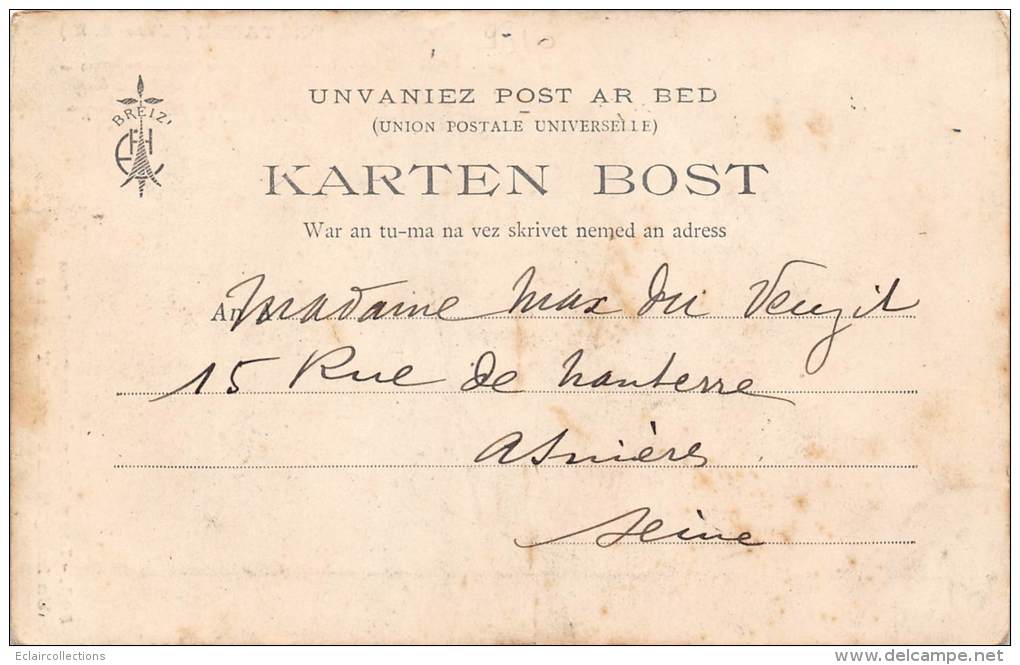 BREIZ'
UNVANIEZ POST AR BED
(UNION POSTALE UNIVERSELLE)
KARTEN BOST
War an tu-ma na vez skrivet nemed an adress
Madame Max du Veuzit
15 Rue de Nanterre
Asnières
Seine
Eclaircollections
www.delcampe.net